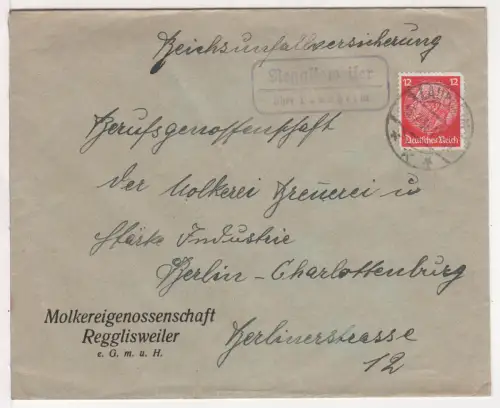 Reichsunfallversicherung
Regglisweiler
über Laupheim
12 12
Deutsches Reich
LAUPHEIM
Berufsgenossenschaft
der Molkerei Brennerei u
Stärke Industrie
Berlin-Charlottenburg
Molkereigenossenschaft
Regglisweiler
e. G. m. u. H.
Berlinerstrasse
12